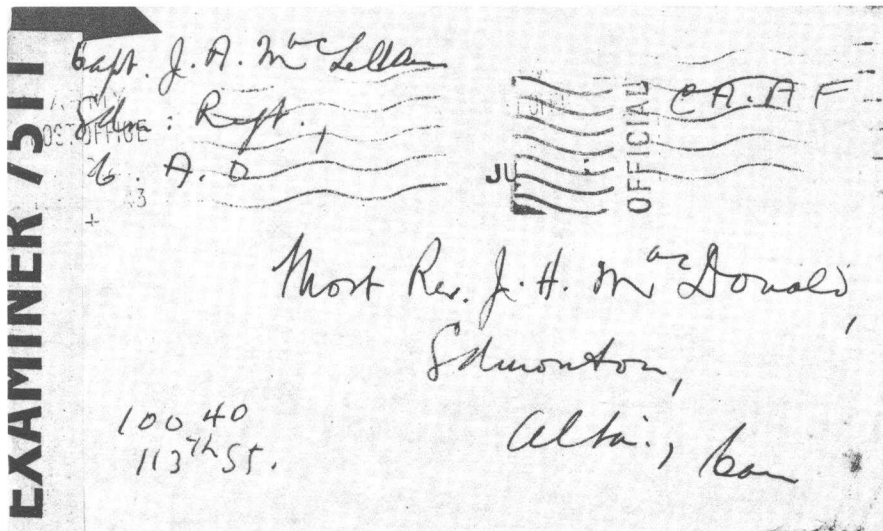 EXAMINER 7511
Capt. J. A. MacLellan
Edm: Regt.,
C. A. O
POST OFFICE
3
JU
OFFICIAL
CA.AF
Most Rev. J. H. MacDonald,
Edmonton,
Alta., Can
100 40
113th St.